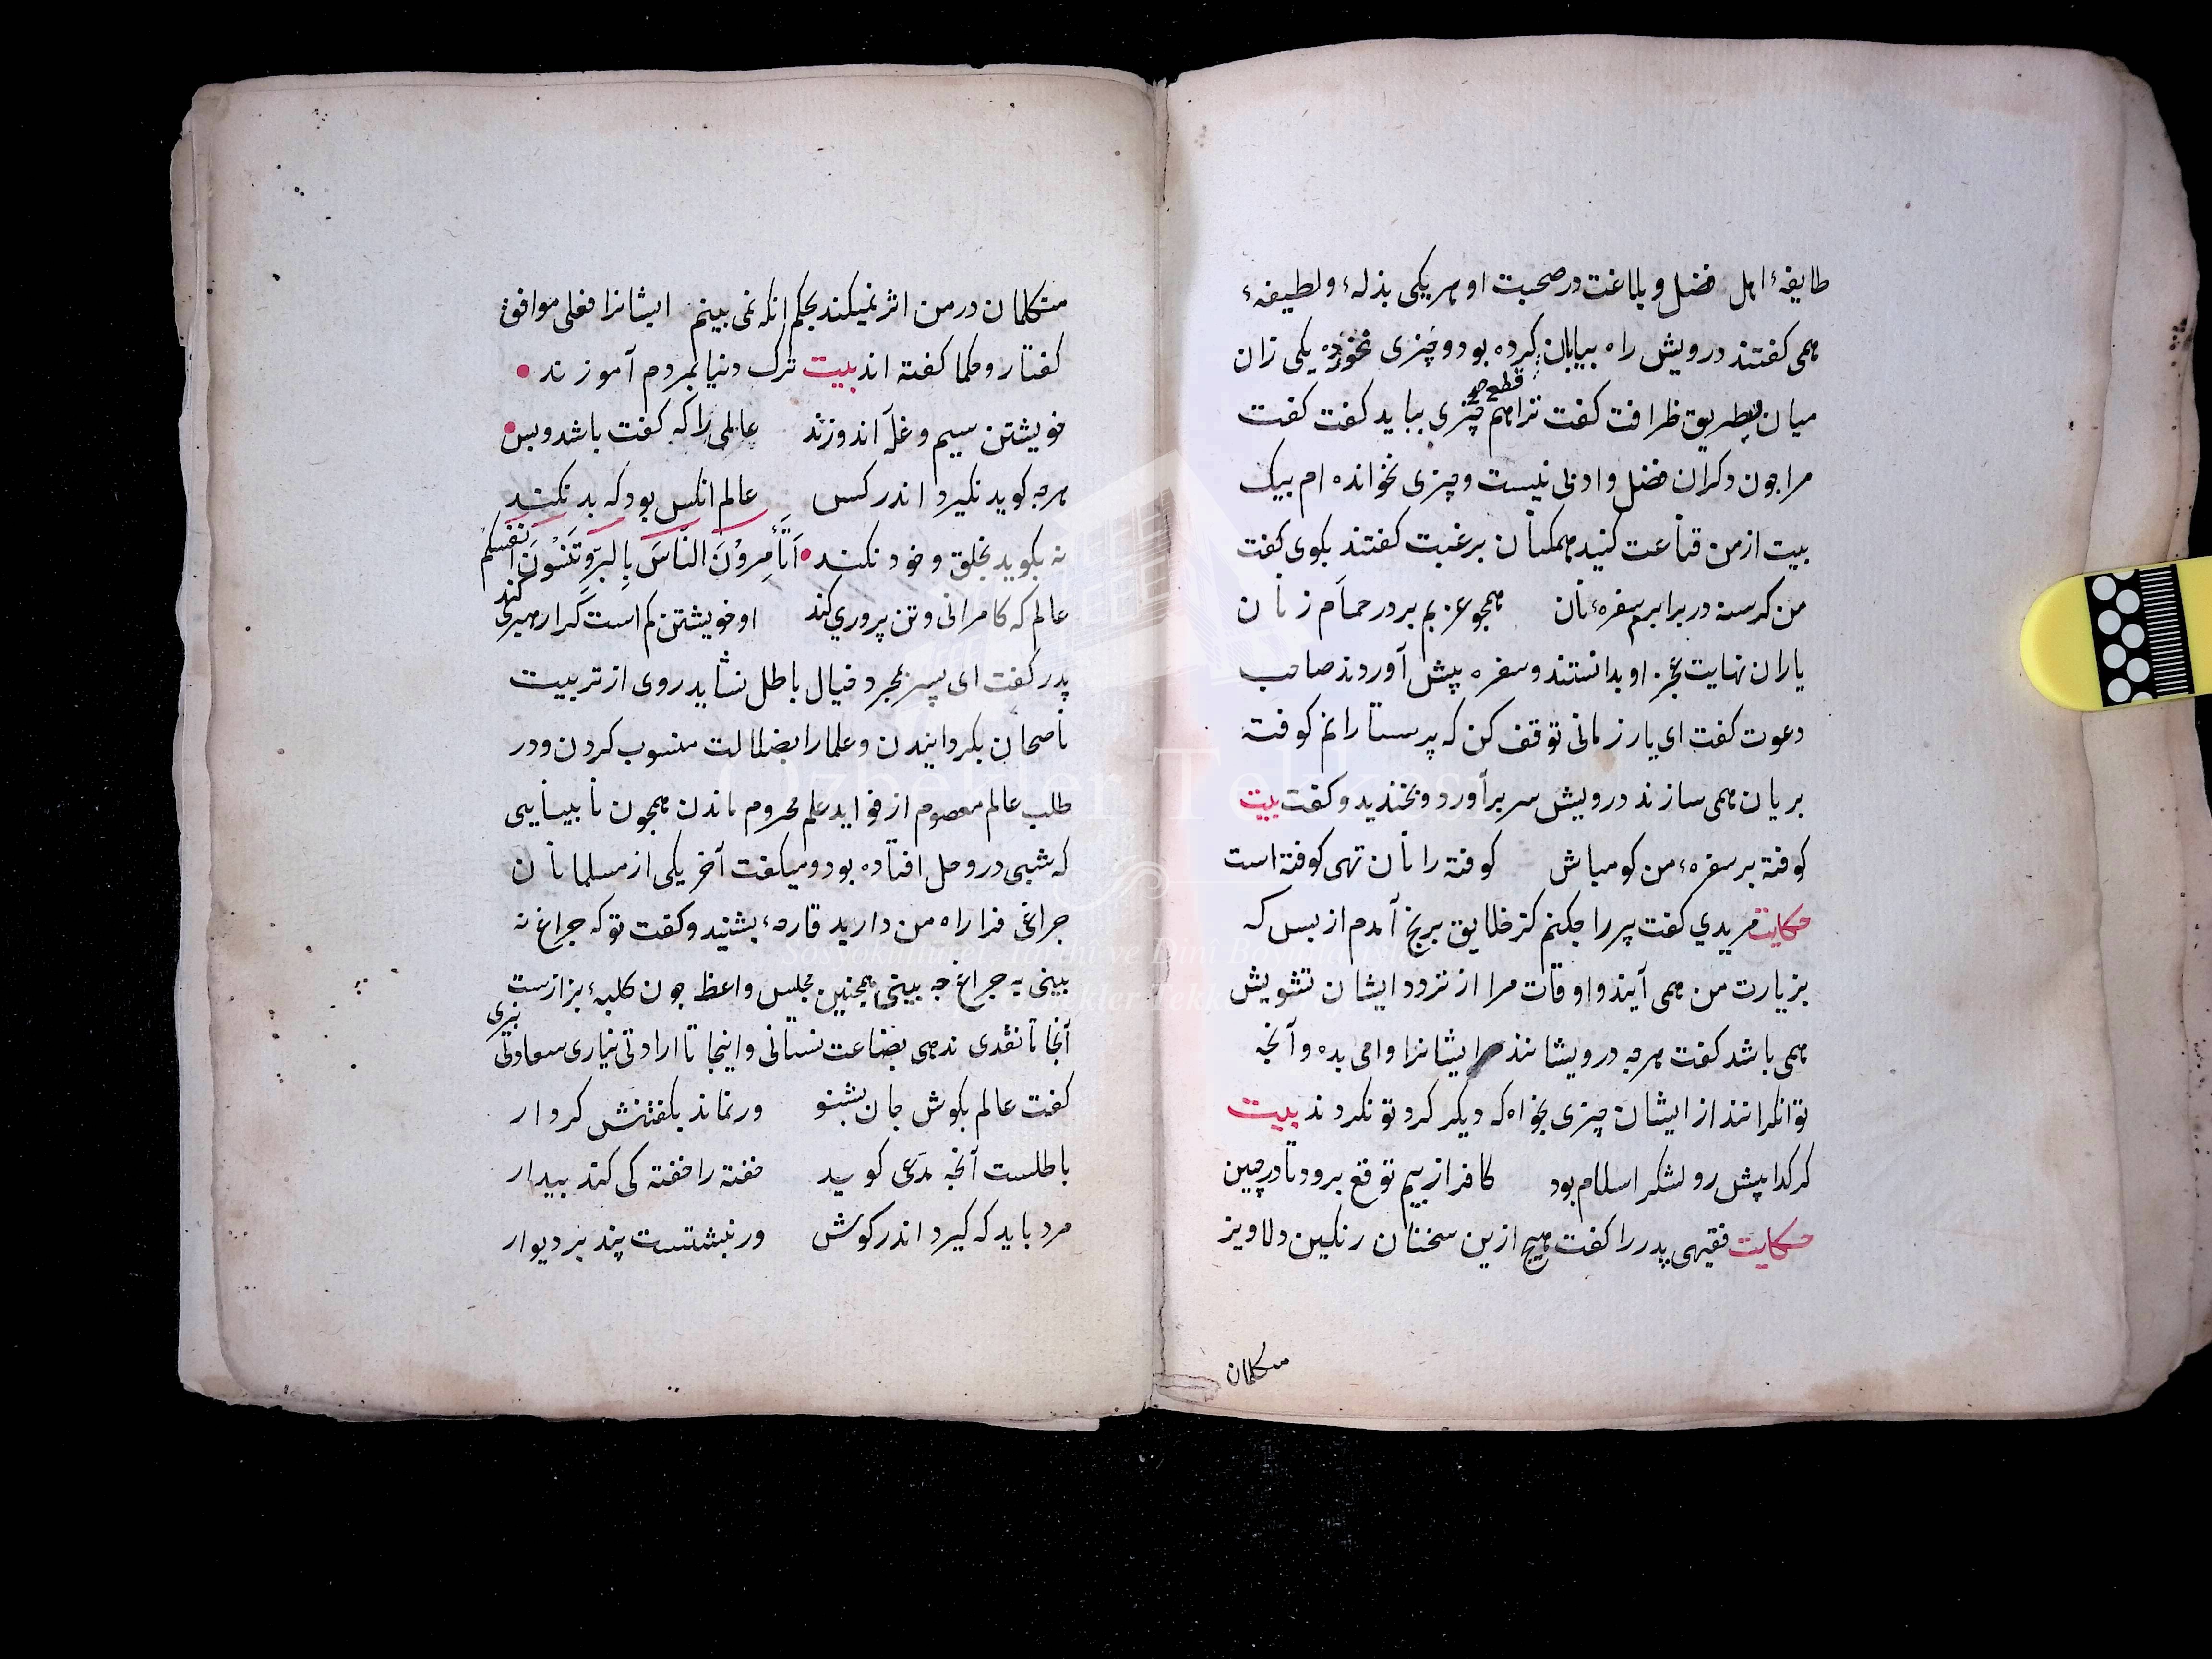 طایفهٔ اهل فضل و بلاغت در صحبت او هر یکی بذلهٔ و لطیفهٔ
همی کفتند درویش راه بیابان کرده بود و چیزی نخورده یکی زان
قطع
میان بطریق ظرافت کفت ترا هم چیزی بباید کفت کفت
مرا جون دکران فضل و ادبی نیست و چیزی نخوانده ام بیک
بیت از من قناعت کنید همکنان برغبت کفتند بکوی کفت
من کرسنه در برابرم سفرهٔ نان همجو عزبم بر در حمّام زنان
یاران نهایت عجز او بدانستند و سفره پیش آوردند صاحب
دعوت کفت ای یار زمانی توقف کن که پرستارانم کوفته
بریان همی سازند درویش سر برآورد و بخندید و کفت بیت
کوفته بر سفرهٔ من کو مباش کوفته را نان تهی کوفته است
حکایت مریدی کفت پر را چکنم کز خلایق برنج آمدم از بس که
بزیارت من همی آیند و اوقات مرا از تردد ایشان تشویش
همی باشد کفت هرجه درویشانند مرا ایشانرا وامی بده و آنجه
توانکرانند از ایشان چیزی بخواه که دیکر کرد تو نکردند بیت
کر کدا پیش رو لشکر اسلام بود کافر از بیم توقع برود تا در چین
حکایت فقیهی پدر را کفت هیچ ازین سخنان رنکین دلاویز
متکلمان
متکلمان در من اثر نمیکند بحکم انکه نمی بینم ایشانرا فعلی موافق
کفتار و حکما کفته اند بیت ترک دنیا بمردم آموزند
خویشتن سیم و غلّه اندوزند عالمی را که کفت باشد و بس
هرجه کوید نکیرد اندر کس عالم انکس بود که بد نکند
نه بکوید بخلق و خود نکند اَتَأْمُرُونَ النَّاسَ بِالْبِرِّ وَتَنْسَوْنَ اَنْفُسَكُمْ
عالم که کامرانی و تن پروری کند او خویشتن کم است کرا رهبری کند
پدر کفت ای پسر بمجرد خیال باطل نشاید روی از تربیت
ناصحان بکردانیدن و علما را بضلالت منسوب کردن و در
طلب عالم معصوم از فواید علم محروم ماندن همجون نابینایی
که شبی در وحل افتاده بود و میکفت آخر یکی از مسلمانان
جراغی فرا راه من دارید قارحهٔ بشنید و کفت تو که جراغ نه
بینی به جراغ جه بینی همجنین مجلس واعظ جون کلبهٔ بزازست
آنجا تا نقدی ندهی بضاعت نستانی و اینجا تا ارادتی نیاری سعادتی نبری
کفت عالم بکوش جان بشنو ور نماند بکفتنش کردار
باطلست آنجه مدّعی کوید خفته را خفته کی کند بیدار
مرد باید که کیرد اندر کوش ور نبشتست پند بر دیوار
Özbekler Tekkesi